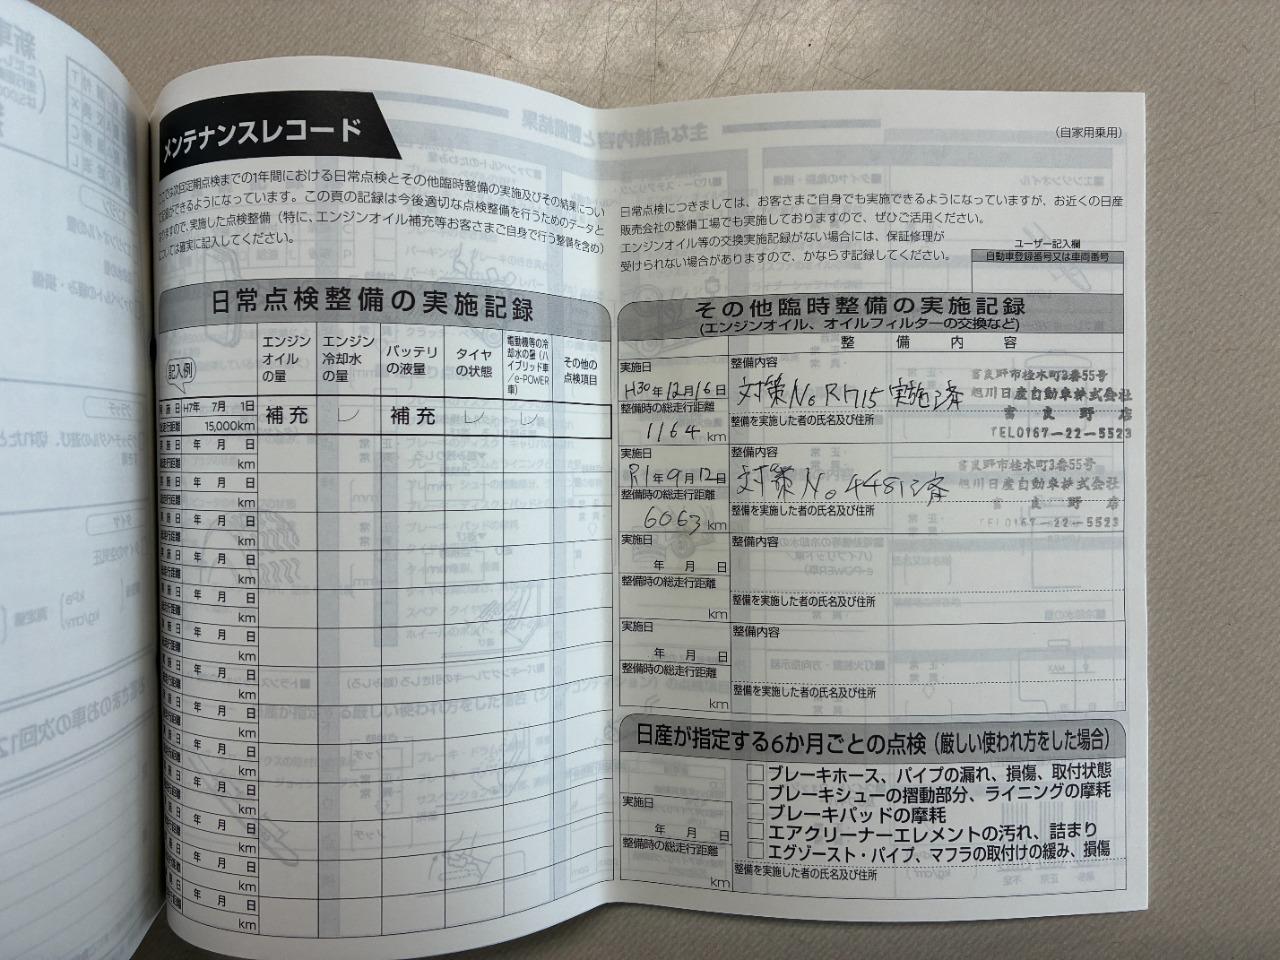 メンテナンスレコード
の1年間における日常点検とその他臨時整備の実施及びその結果につい
できるようになっています。この頁の記録は今後適切な点検整備を行うためのデータと
ますので、実施した点検整備(特に、エンジンオイル補充等お客さまご自身で行う整備を含め)
については確実に記入してください。
日常点検整備の実施記録
記入例
エンジンオイルの量
エンジン冷却水の量
バッテリの液量
タイヤの状態
電動機等の冷却水の量(ハイブリッド車/e-POWER車)
その他の点検項目
実施日 H7年 7月 1日
走行距離 15,000km
補充 レ 補充 レ レ
実施日 年 月 日
走行距離 km
実施日 年 月 日
走行距離 km
実施日 年 月 日
走行距離 km
実施日 年 月 日
走行距離 km
実施日 年 月 日
走行距離 km
実施日 年 月 日
走行距離 km
実施日 年 月 日
走行距離 km
実施日 年 月 日
走行距離 km
実施日 年 月 日
走行距離 km
実施日 年 月 日
走行距離 km
実施日 年 月 日
走行距離 km
実施日 年 月 日
走行距離 km
実施日 年 月 日
走行距離 km
(自家用乗用)
日常点検につきましては、お客さまご自身でも実施できるようになっていますが、お近くの日産
販売会社の整備工場でも実施しておりますので、ぜひご活用ください。
エンジンオイル等の交換実施記録がない場合には、保証修理が
受けられない場合がありますので、かならず記録してください。
ユーザー記入欄
自動車登録番号又は車両番号
その他臨時整備の実施記録
(エンジンオイル、オイルフィルターの交換など)
整備内容
実施日
H30年12月16日
整備時の総走行距離
1164 km
整備内容
対策No R1715 実施済
整備を実施した者の氏名及び住所
富良野市桂木町3番55号
旭川日産自動車株式会社
富良野店
TEL0167-22-5523
実施日
R1年9月12日
整備時の総走行距離
6063 km
整備内容
対策No 4481済
整備を実施した者の氏名及び住所
富良野市桂木町3番55号
旭川日産自動車株式会社
富良野店
TEL0167-22-5523
実施日
年 月 日
整備時の総走行距離
km
整備内容
整備を実施した者の氏名及び住所
実施日
年 月 日
整備時の総走行距離
km
整備内容
整備を実施した者の氏名及び住所
日産が指定する6か月ごとの点検(厳しい使われ方をした場合)
実施日
年 月 日
整備時の総走行距離
km
ブレーキホース、パイプの漏れ、損傷、取付状態
ブレーキシューの摺動部分、ライニングの摩耗
ブレーキパッドの摩耗
エアクリーナーエレメントの汚れ、詰まり
エグゾースト・パイプ、マフラの取付けの緩み、損傷
整備を実施した者の氏名及び住所